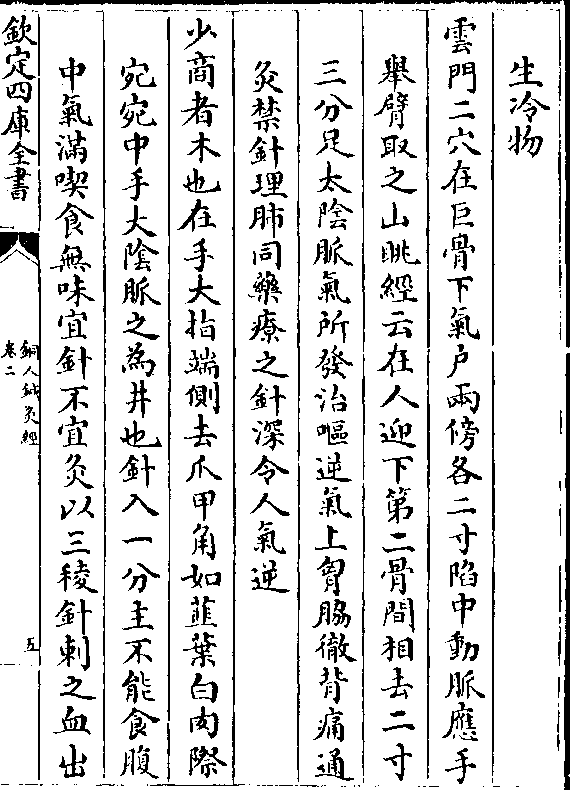 生冷物
雲門二穴在巨骨下氣户兩傍各二寸陷中動脈應手
舉臂取之山眺經云在人迎下第二骨間相去二寸
三分足太陰脈氣所發治嘔逆氣上胷脇徹背痛通
灸禁針理肺同藥療之針深令人氣逆
少商者木也在手大指端側去爪甲角如韮葉白肉際
宛宛中手大陰脈之為井也針入一分主不能食腹
中氣滿喫食無味宜針不宜灸以三稜針刺之血出
欽定四庫全書
銅人鍼灸經
卷二
五